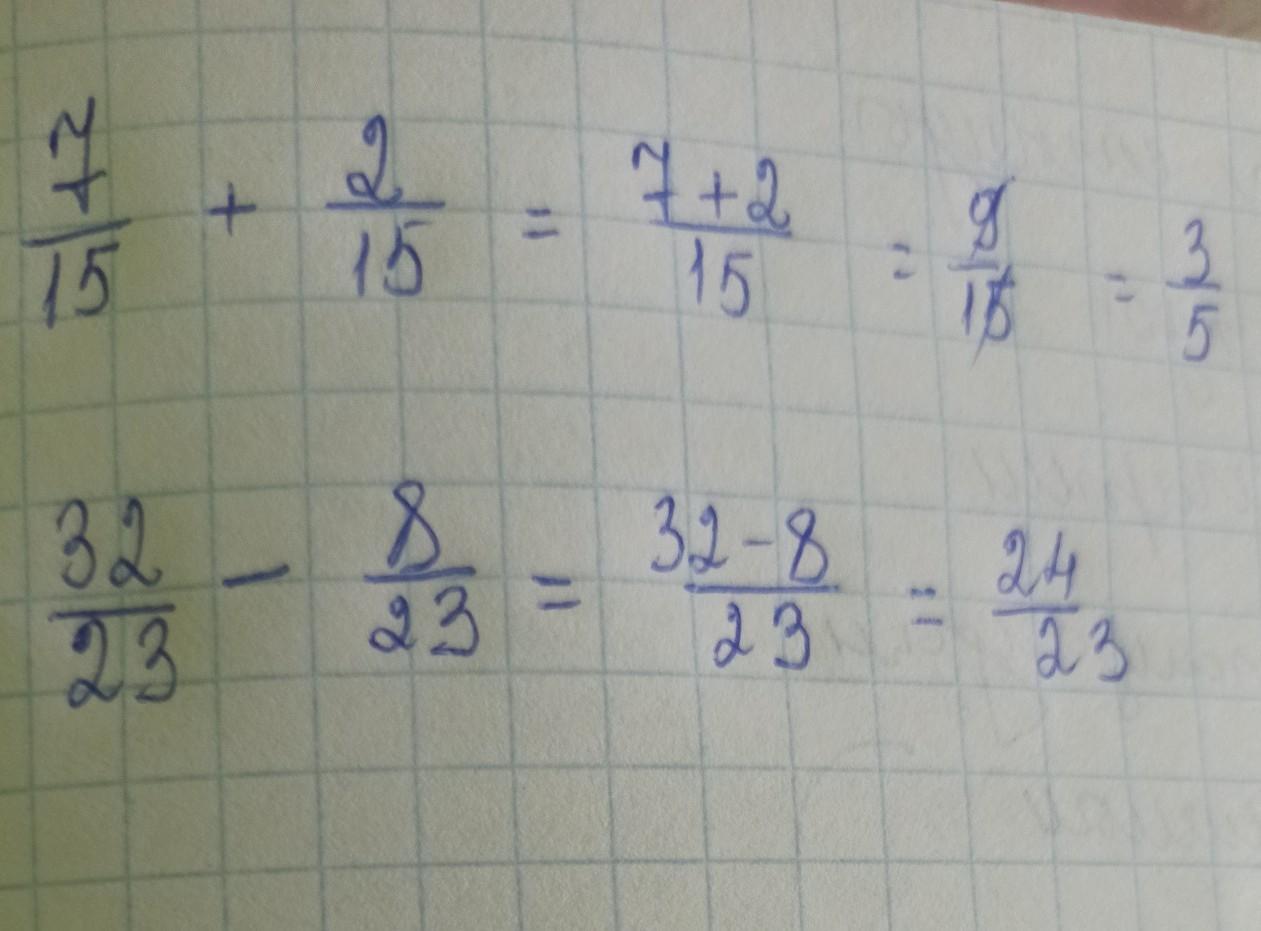 7/15 + 2/15 = 7+2/15 = 9/15 = 3/5
32/23 - 8/23 = 32-8/23 = 24/23